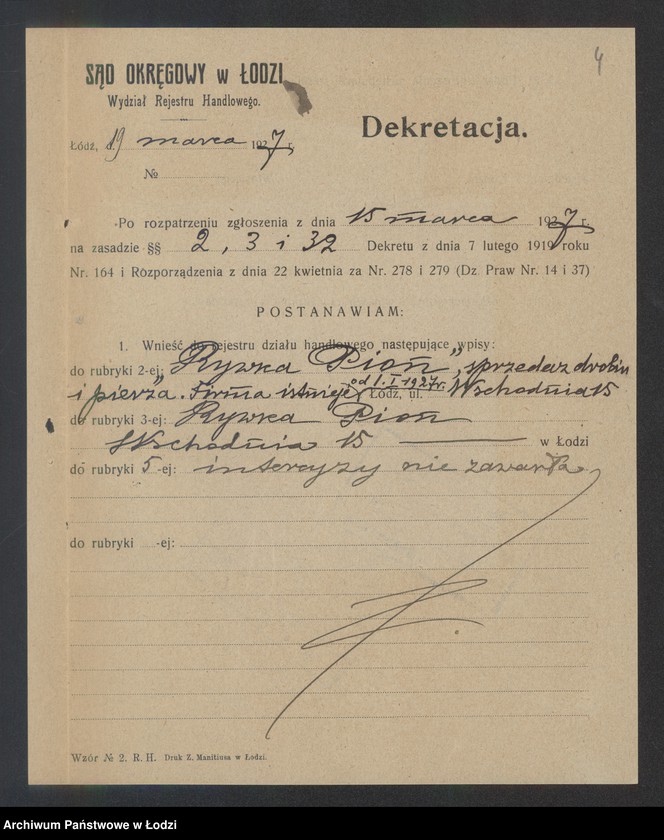 4
SĄD OKRĘGOWY w ŁODZI
Wydział Rejestru Handlowego.
Dekretacja.
Łódź, d. 19 marca 1927 r.
№
Po rozpatrzeniu zgłoszenia z dnia 15 marca 1927 r.
na zasadzie §§ 2, 3 i 32 Dekretu z dnia 7 lutego 1919 roku
Nr. 164 i Rozporządzenia z dnia 22 kwietnia za Nr. 278 i 279 (Dz. Praw Nr. 14 i 37)
POSTANAWIAM:
1. Wnieść do rejestru działu handlowego następujące wpisy:
do rubryki 2-ej: „Rywka Pion", sprzedaż drobiu
i pierza. Firma istnieje od 1.I 1927 r. Łódź, ul. Wschodnia 15
do rubryki 3-ej: Rywka Pion
Wschodnia 15 w Łodzi
do rubryki 5-ej: intercyzy nie zawarła
do rubryki -ej:
Wzór № 2. R. H. Druk Z. Manitiusa w Łodzi.
Archiwum Państwowe w Łodzi